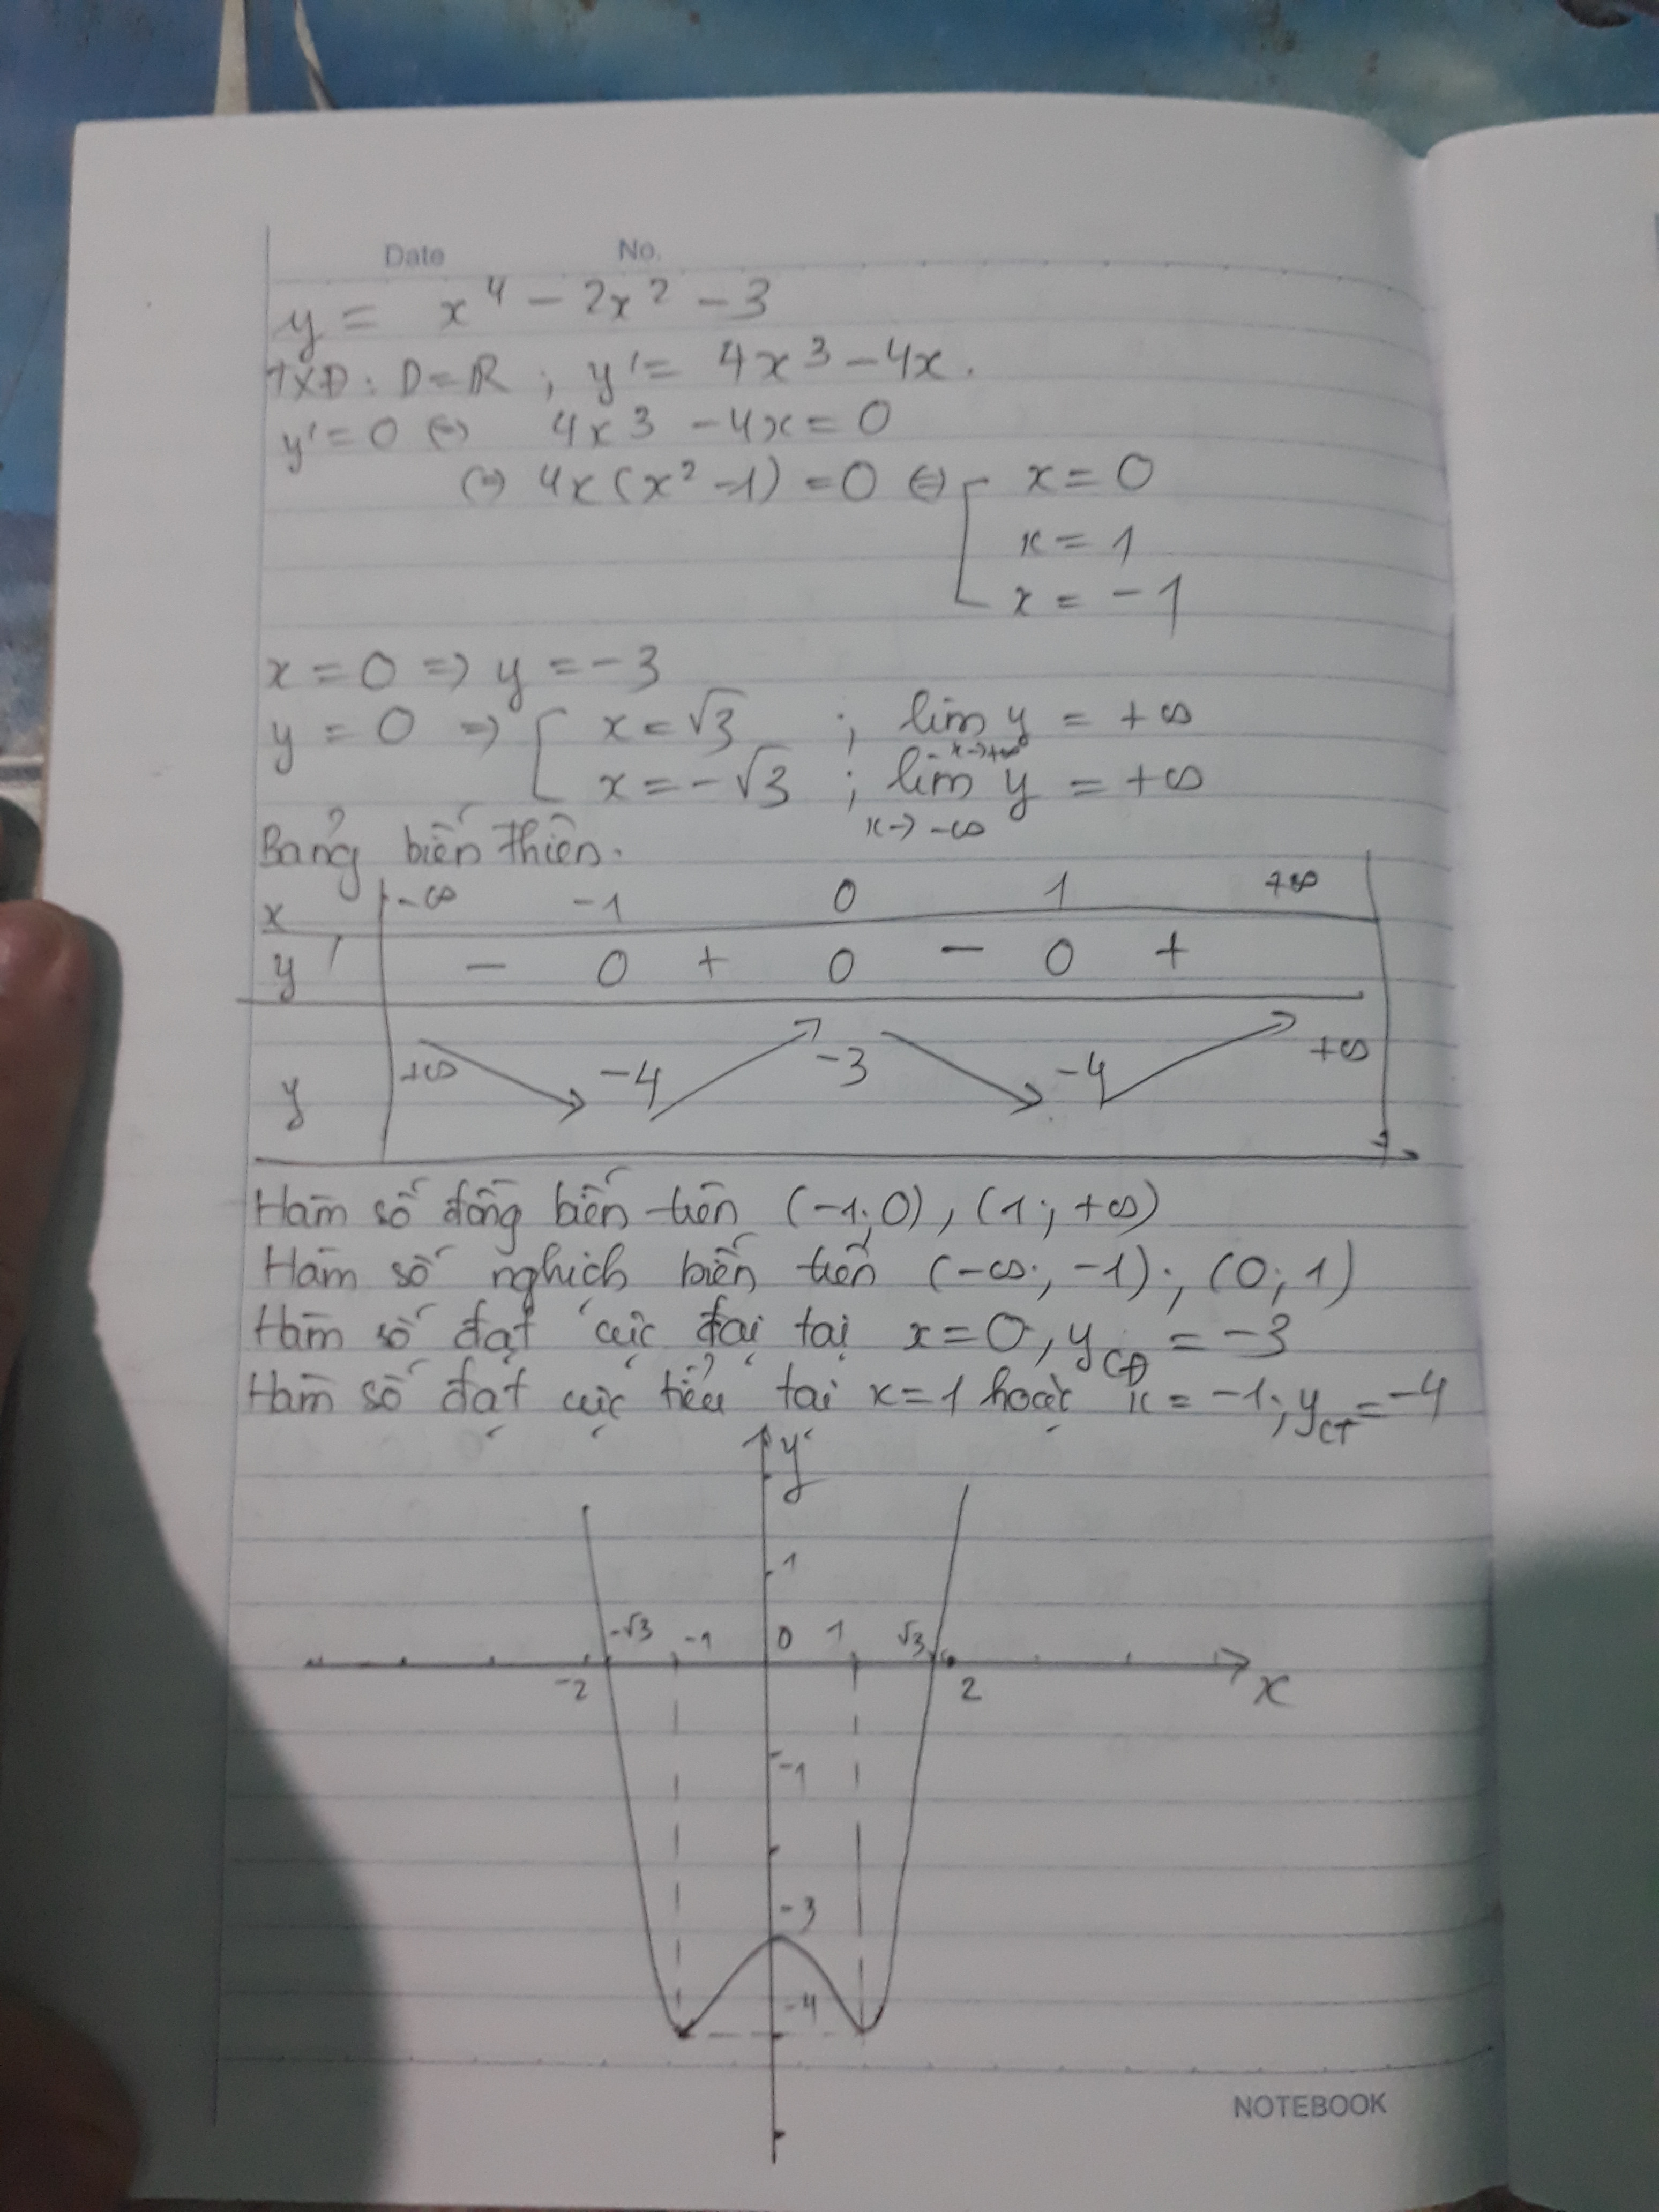 Date No.
y = x⁴ - 2x² - 3
TXĐ: D=R ; y' = 4x³ - 4x.
y' = 0 (=) 4x³ - 4x = 0
(=) 4x(x² - 1) = 0 (=) [ x = 0
x = 1
x = -1
x = 0 => y = -3
y = 0 => [ x = √3 ; lim y = +∞
x→+∞
x = -√3 ; lim y = +∞
x→ -∞
Bảng biến thiên.
x -∞ -1 0 1 +∞
y' - 0 + 0 - 0 +
y +∞ -4 -3 -4 +∞
Hàm số đồng biến trên (-1; 0), (1; +∞)
Hàm số nghịch biến trên (-∞; -1); (0; 1)
Hàm số đạt cực đại tại x=0, yCĐ = -3
Hàm số đạt cực tiểu tại x=1 hoặc x = -1; yCT = -4
y
1
-√3 -1 0 1 √3
-2 2 x
-1
-3
-4
NOTEBOOK